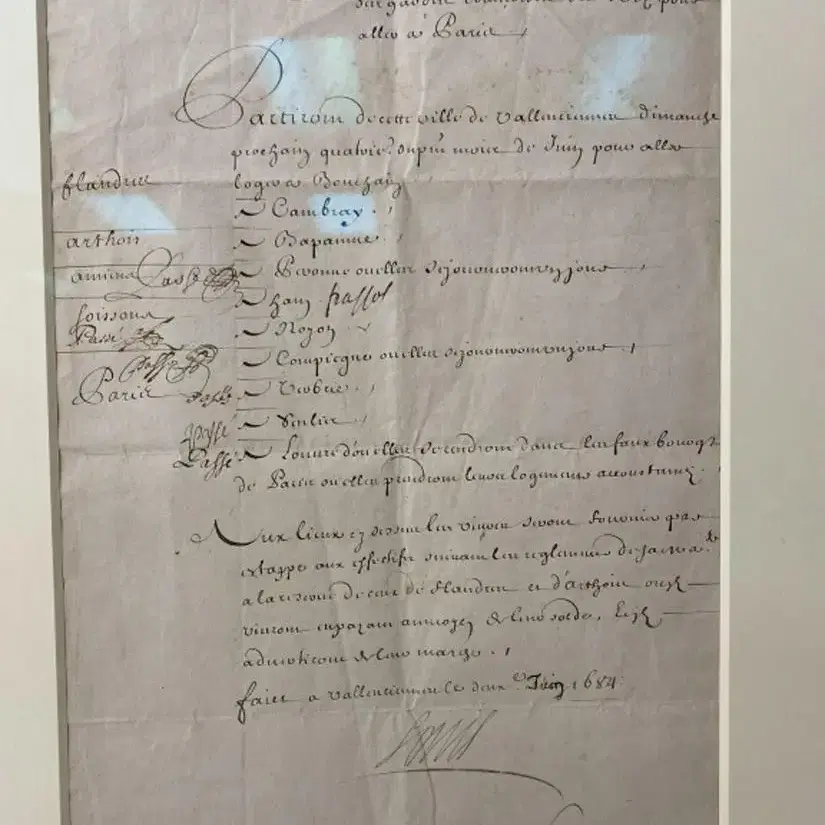 aller a Paris
Partiront de cette ville de Vallenciennes dimanche
prochain quatriè. du pnt mois de Juin pour aller
flandres
loger a Bouchain
A Cambray
arthois
A Bapaume
amiens Passé
A Peronne ou elles sejourneront un jour
A ham passé
soissons
A Noyon
Passé
Passé
A Compiegne ou elles sejourneront un jour
Paris
A Verbrie
A Senlis
Passé
Passé
A Louvre d'ou elles se rendront dans les faux bourgs
de Paris ou elles prendront leurs logemens accoustumez
Aux lieux cy dessus les vivres seront fournis par
estappe aux effectifs suivant les reglemens de sa
a la reserve de ceux de flandres et d'arthois ou ilz
vivront en payant au moyen de leur solde, Les
de leur marche
faict a Vallenciennes le deux.e Juin 1684
Louis